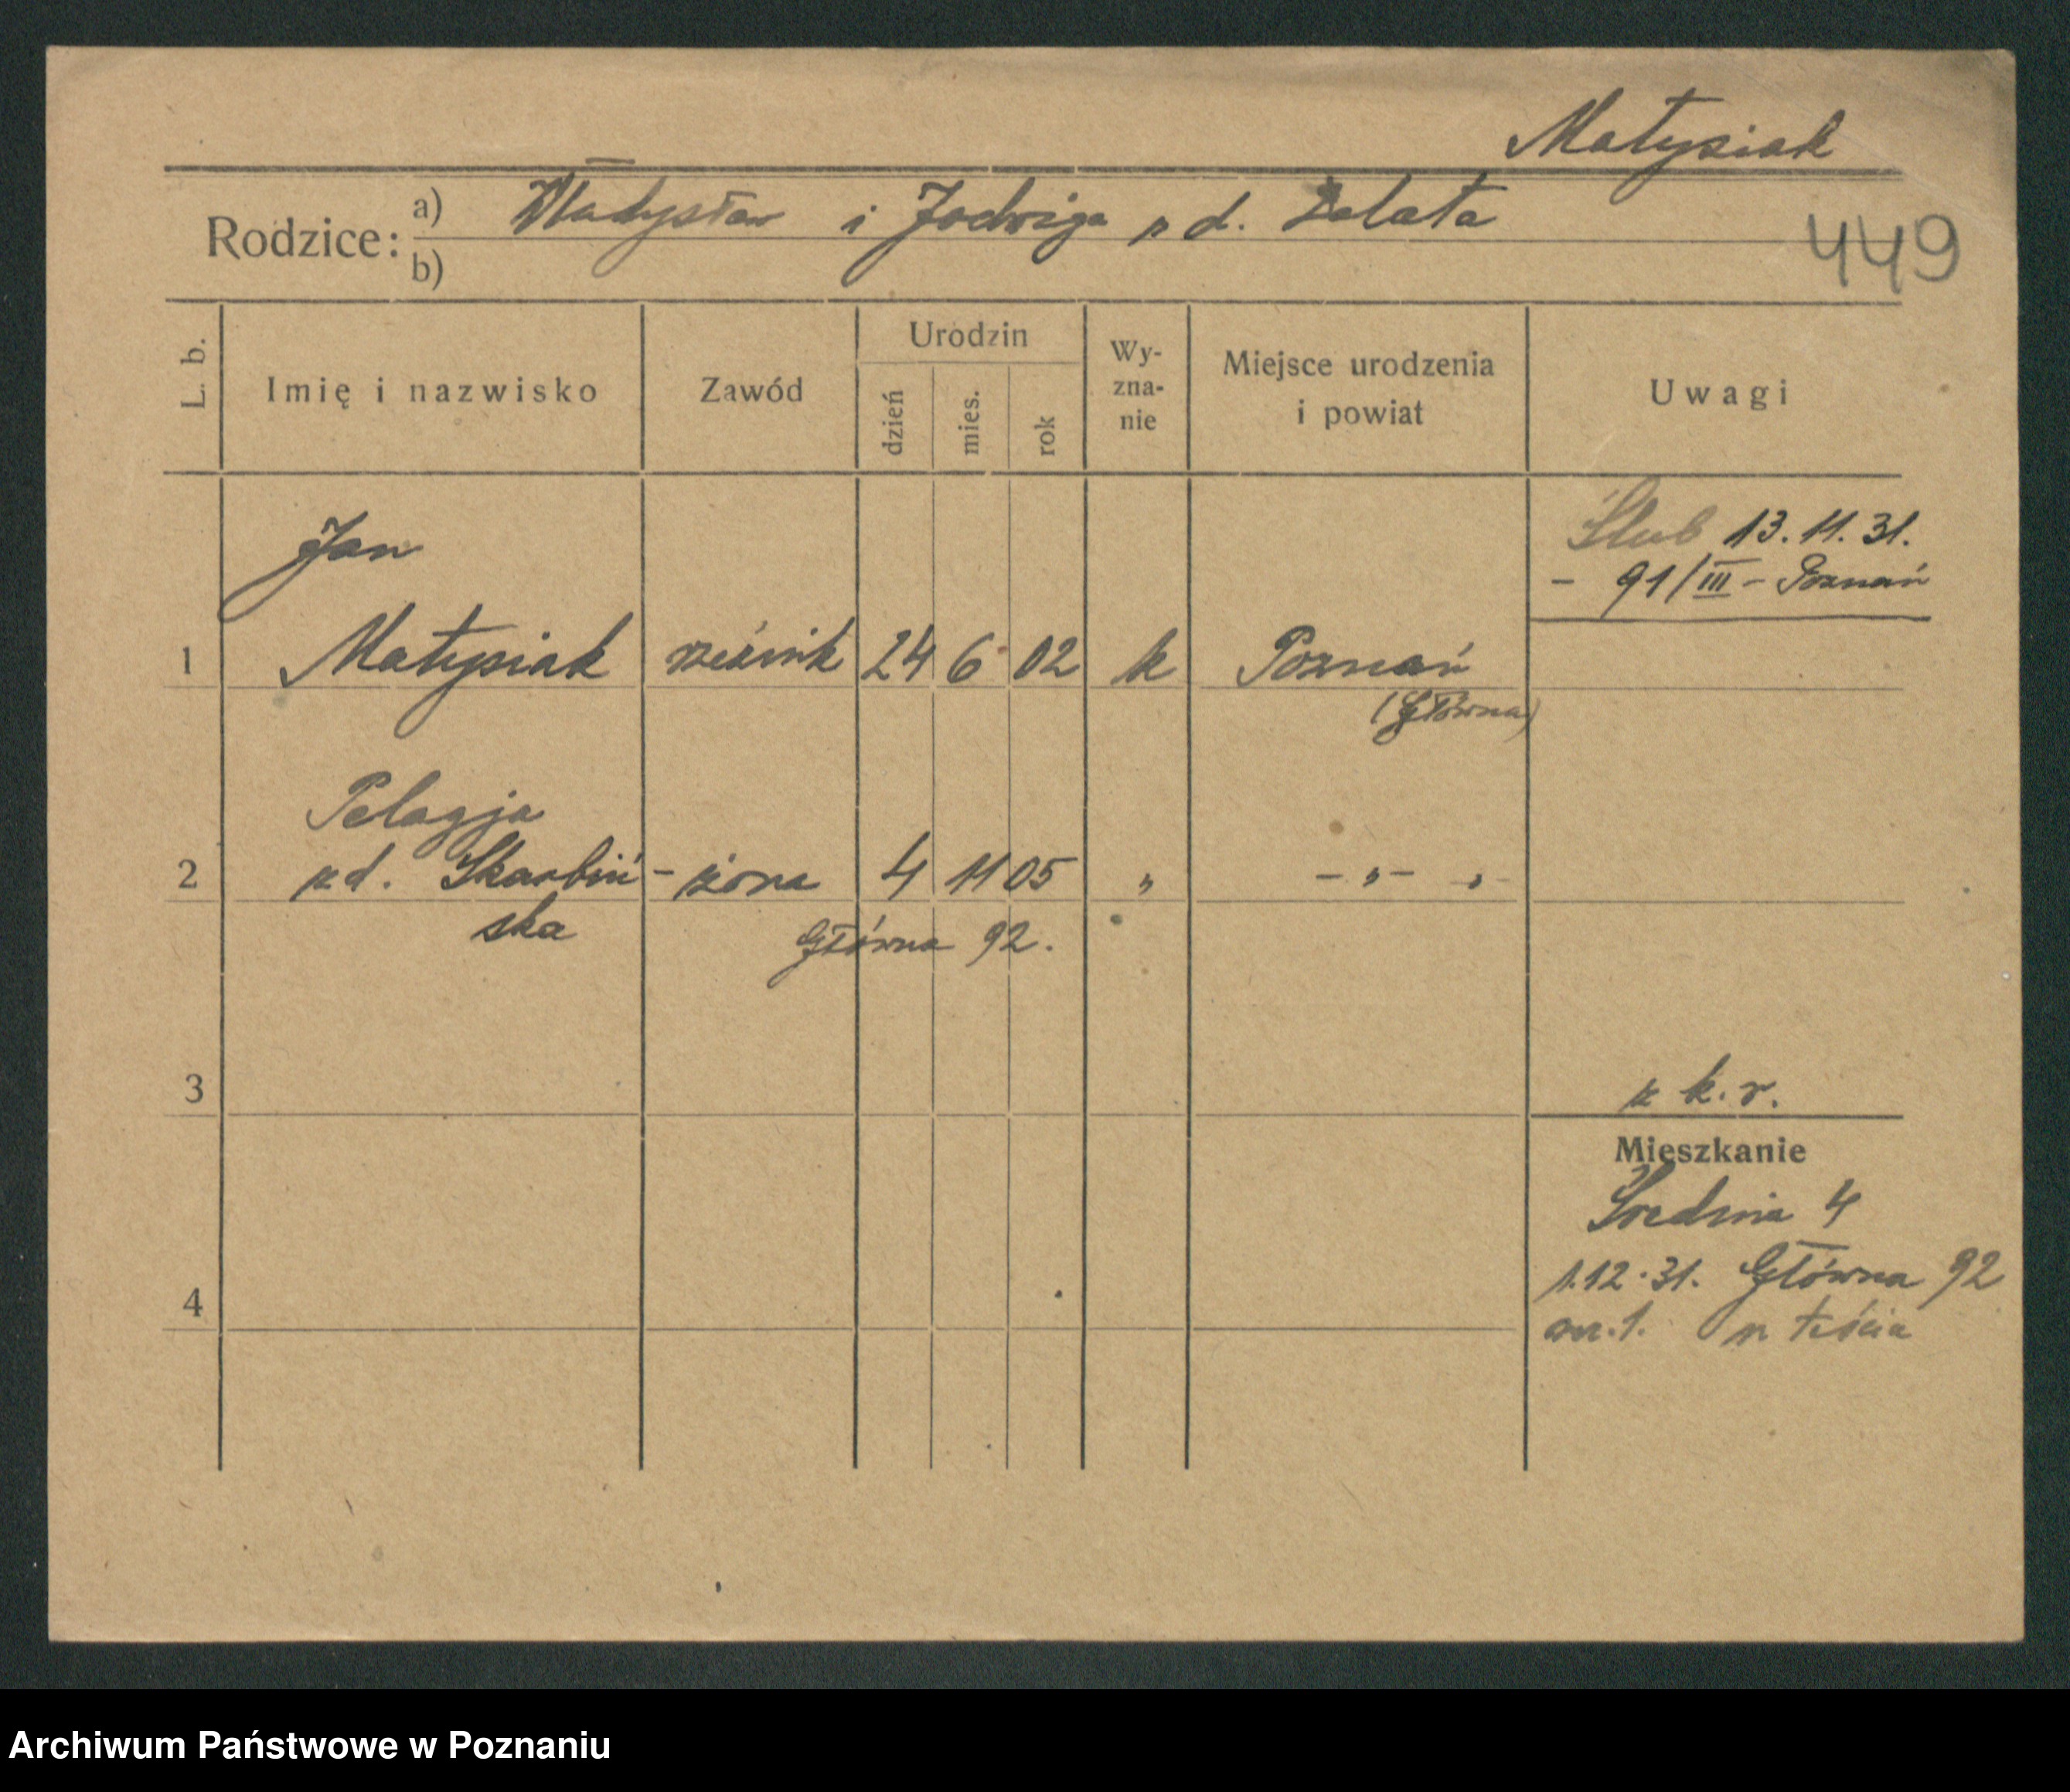 Matysiak
Rodzice: a) Władysław i Jadwiga z d. Załata
b)
449
L. b.
Imię i nazwisko
Zawód
Urodzin
dzień
mies.
rok
Wy-
zna-
nie
Miejsce urodzenia
i powiat
Uwagi
Ślub 13.11.31.
- 91/III - Poznań
Jan
1 Matysiak rzeźnik 24 6 02 k Poznań
(Główna)
Pelagja
2 z d. Skarbiń- żona 4 11 05 " - " - "
ska
Główna 92.
3
z k. r.
Mieszkanie
Średnia 4
1.12.31. Główna 92
4
m. 1. u teścia
Archiwum Państwowe w Poznaniu